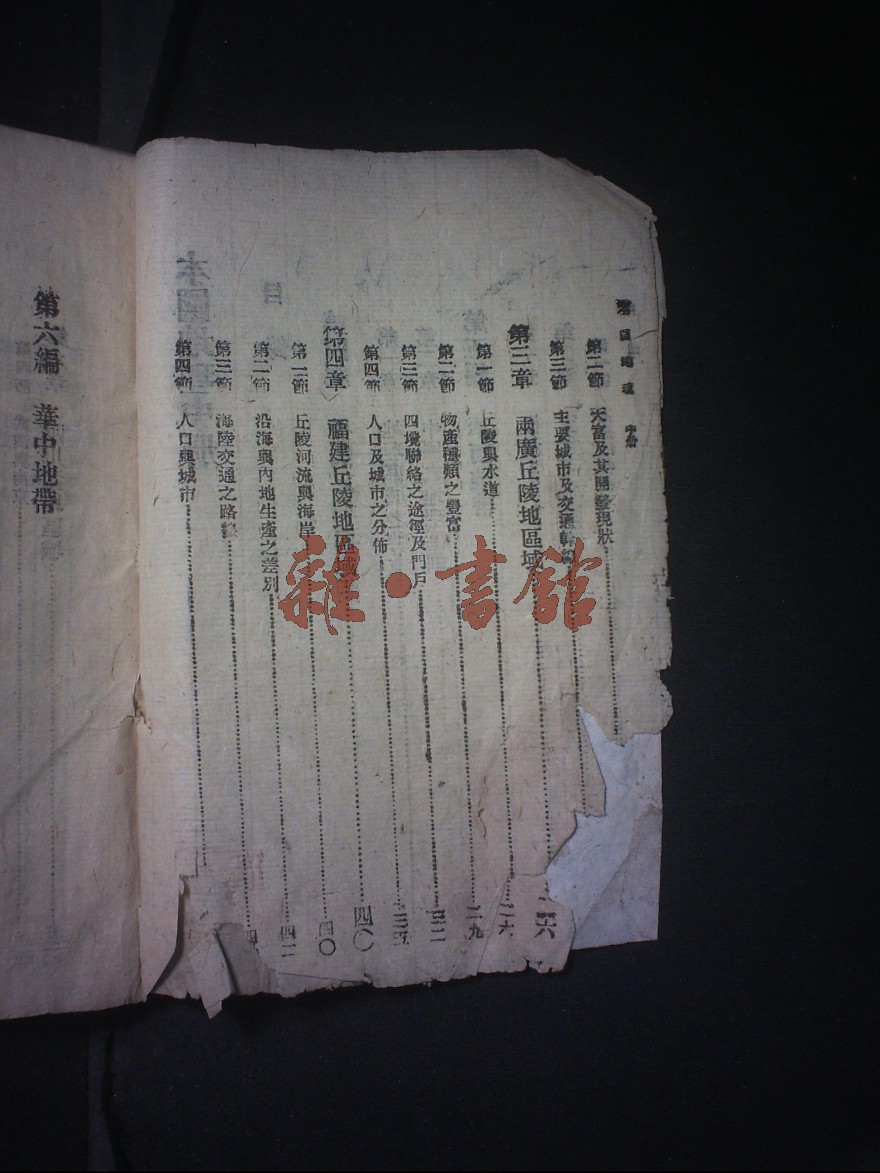 本國地理 中册
第二節 天富及其開發現狀
第三節 主要城市及交通幹線
第三章 兩廣丘陵地區域 二六
第一節 丘陵與水道 二六
第二節 物產種類之豐富 二九
第三節 四境聯絡之途徑及門戶 三二
第四節 人口及城市之分佈 三五
第四章 福建丘陵地區域 四〇
第一節 丘陵河流與海岸 四〇
第二節 沿海與內地生產之差別 四二
第三節 海陸交通之路線 四
第四節 人口與城市
第六編 華中地帶
雜·書館